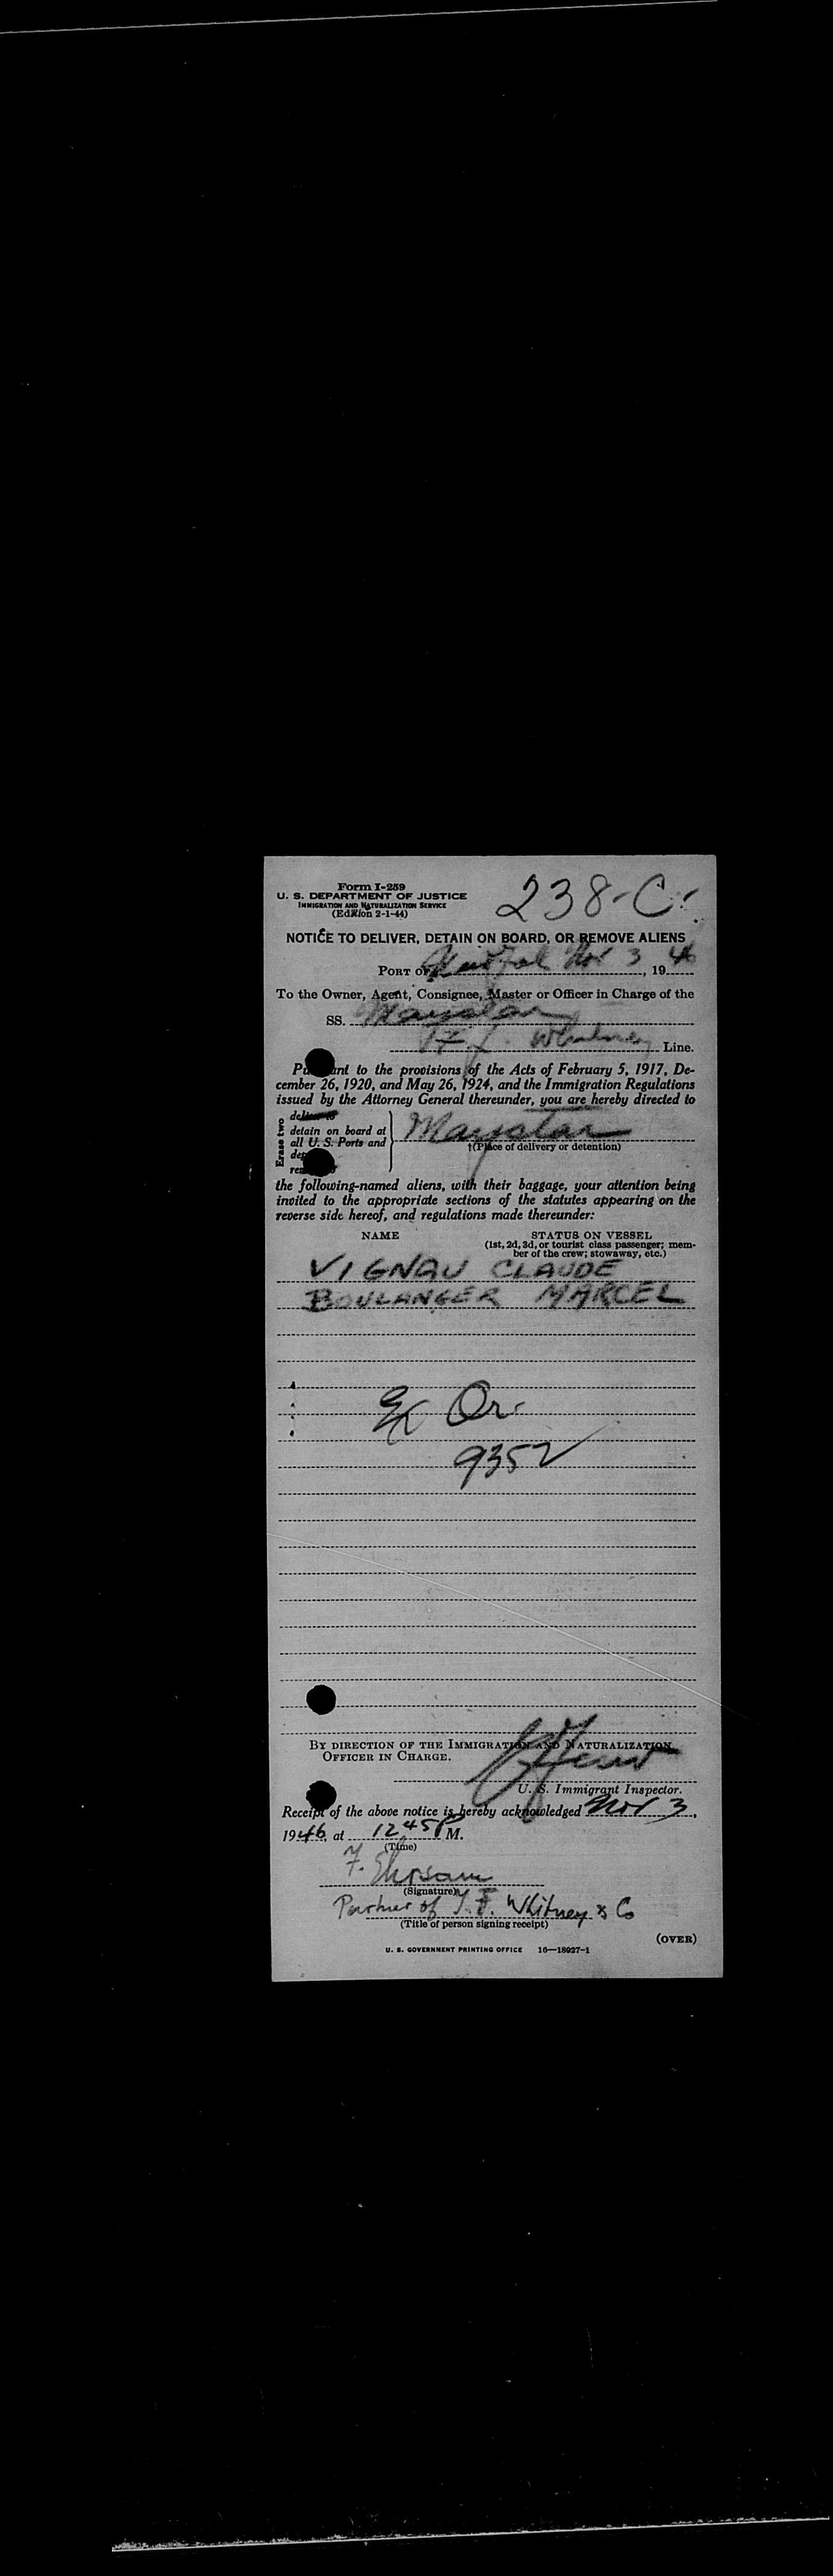 Form I-259
U. S. DEPARTMENT OF JUSTICE
IMMIGRATION AND NATURALIZATION SERVICE
(Edition 2-1-44)
238-C
NOTICE TO DELIVER, DETAIN ON BOARD, OR REMOVE ALIENS
PORT OF Nov 3, 1946
To the Owner, Agent, Consignee, Master or Officer in Charge of the
SS. Maystar
Whitney Line.
Pursuant to the provisions of the Acts of February 5, 1917, De-
cember 26, 1920, and May 26, 1924, and the Immigration Regulations
issued by the Attorney General thereunder, you are hereby directed to
Erase two
deliver to
detain on board at
all U. S. Ports and
Maystar
†(Place of delivery or detention)
the following-named aliens, with their baggage, your attention being
invited to the appropriate sections of the statutes appearing on the
reverse side hereof, and regulations made thereunder:
NAME STATUS ON VESSEL
(1st, 2d, 3d, or tourist class passenger; mem-
ber of the crew; stowaway, etc.)
VIGNAU CLAUDE
BOULANGER MARCEL
Or.
9352
BY DIRECTION OF THE IMMIGRATION AND NATURALIZATION
OFFICER IN CHARGE.
U. S. Immigrant Inspector.
Receipt of the above notice is hereby acknowledged Nov 3,
1946, at 1245 P M.
(Time)
F. Ehrsam
(Signature)
Partner of J. F. Whitney & Co
(Title of person signing receipt)
(OVER)
U. S. GOVERNMENT PRINTING OFFICE 16—18027-1